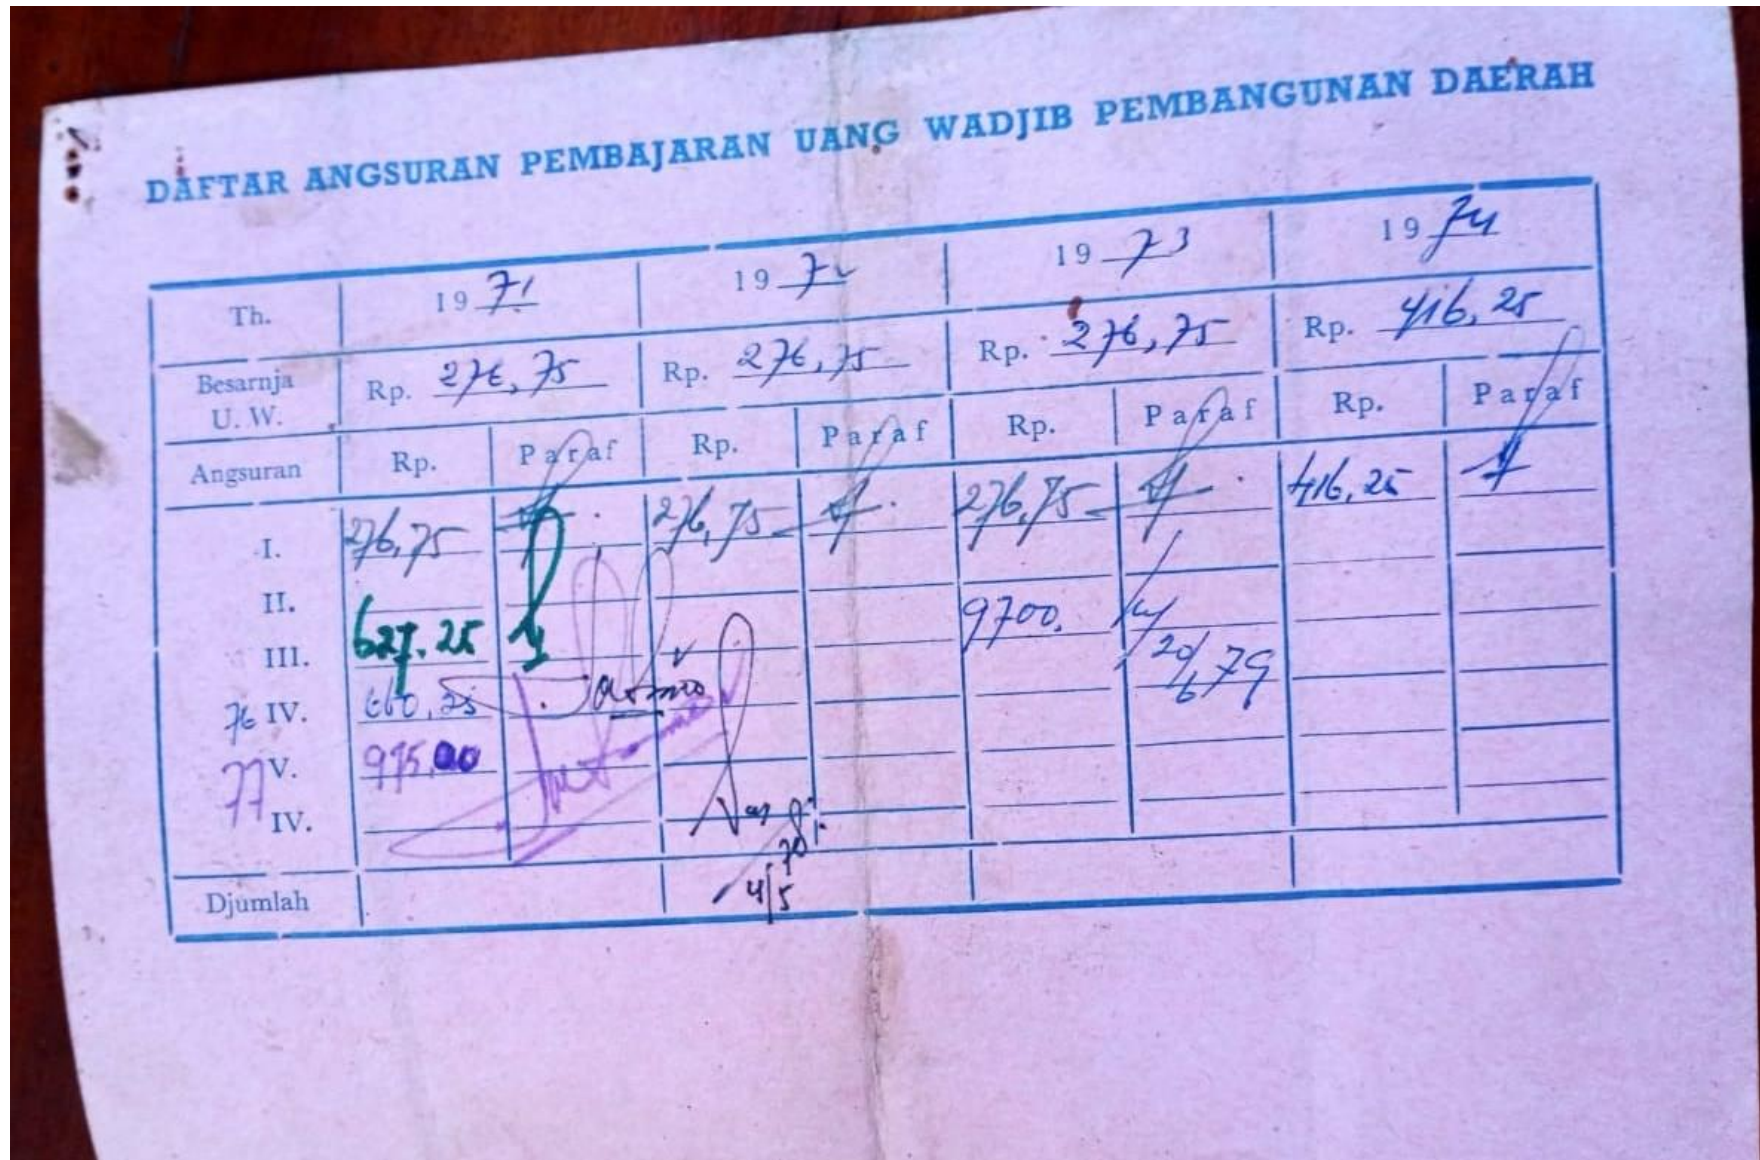 DAFTAR ANGSURAN PEMBAJARAN UANG WADJIB PEMBANGUNAN DAERAH
Th. 1971 1972 1973 1974
Besarnja U. W. Rp. 276,75 Rp. 276,75 Rp. 276,75 Rp. 416,25
Angsuran Rp. Paraf Rp. Paraf Rp. Paraf Rp. Paraf
I. 276,75 276,75 276,75 416,25
II. 9700.
III. 627.25 20/6 79
76 IV. 660,25
77 V. 975.00
IV.
Djumlah 4/5